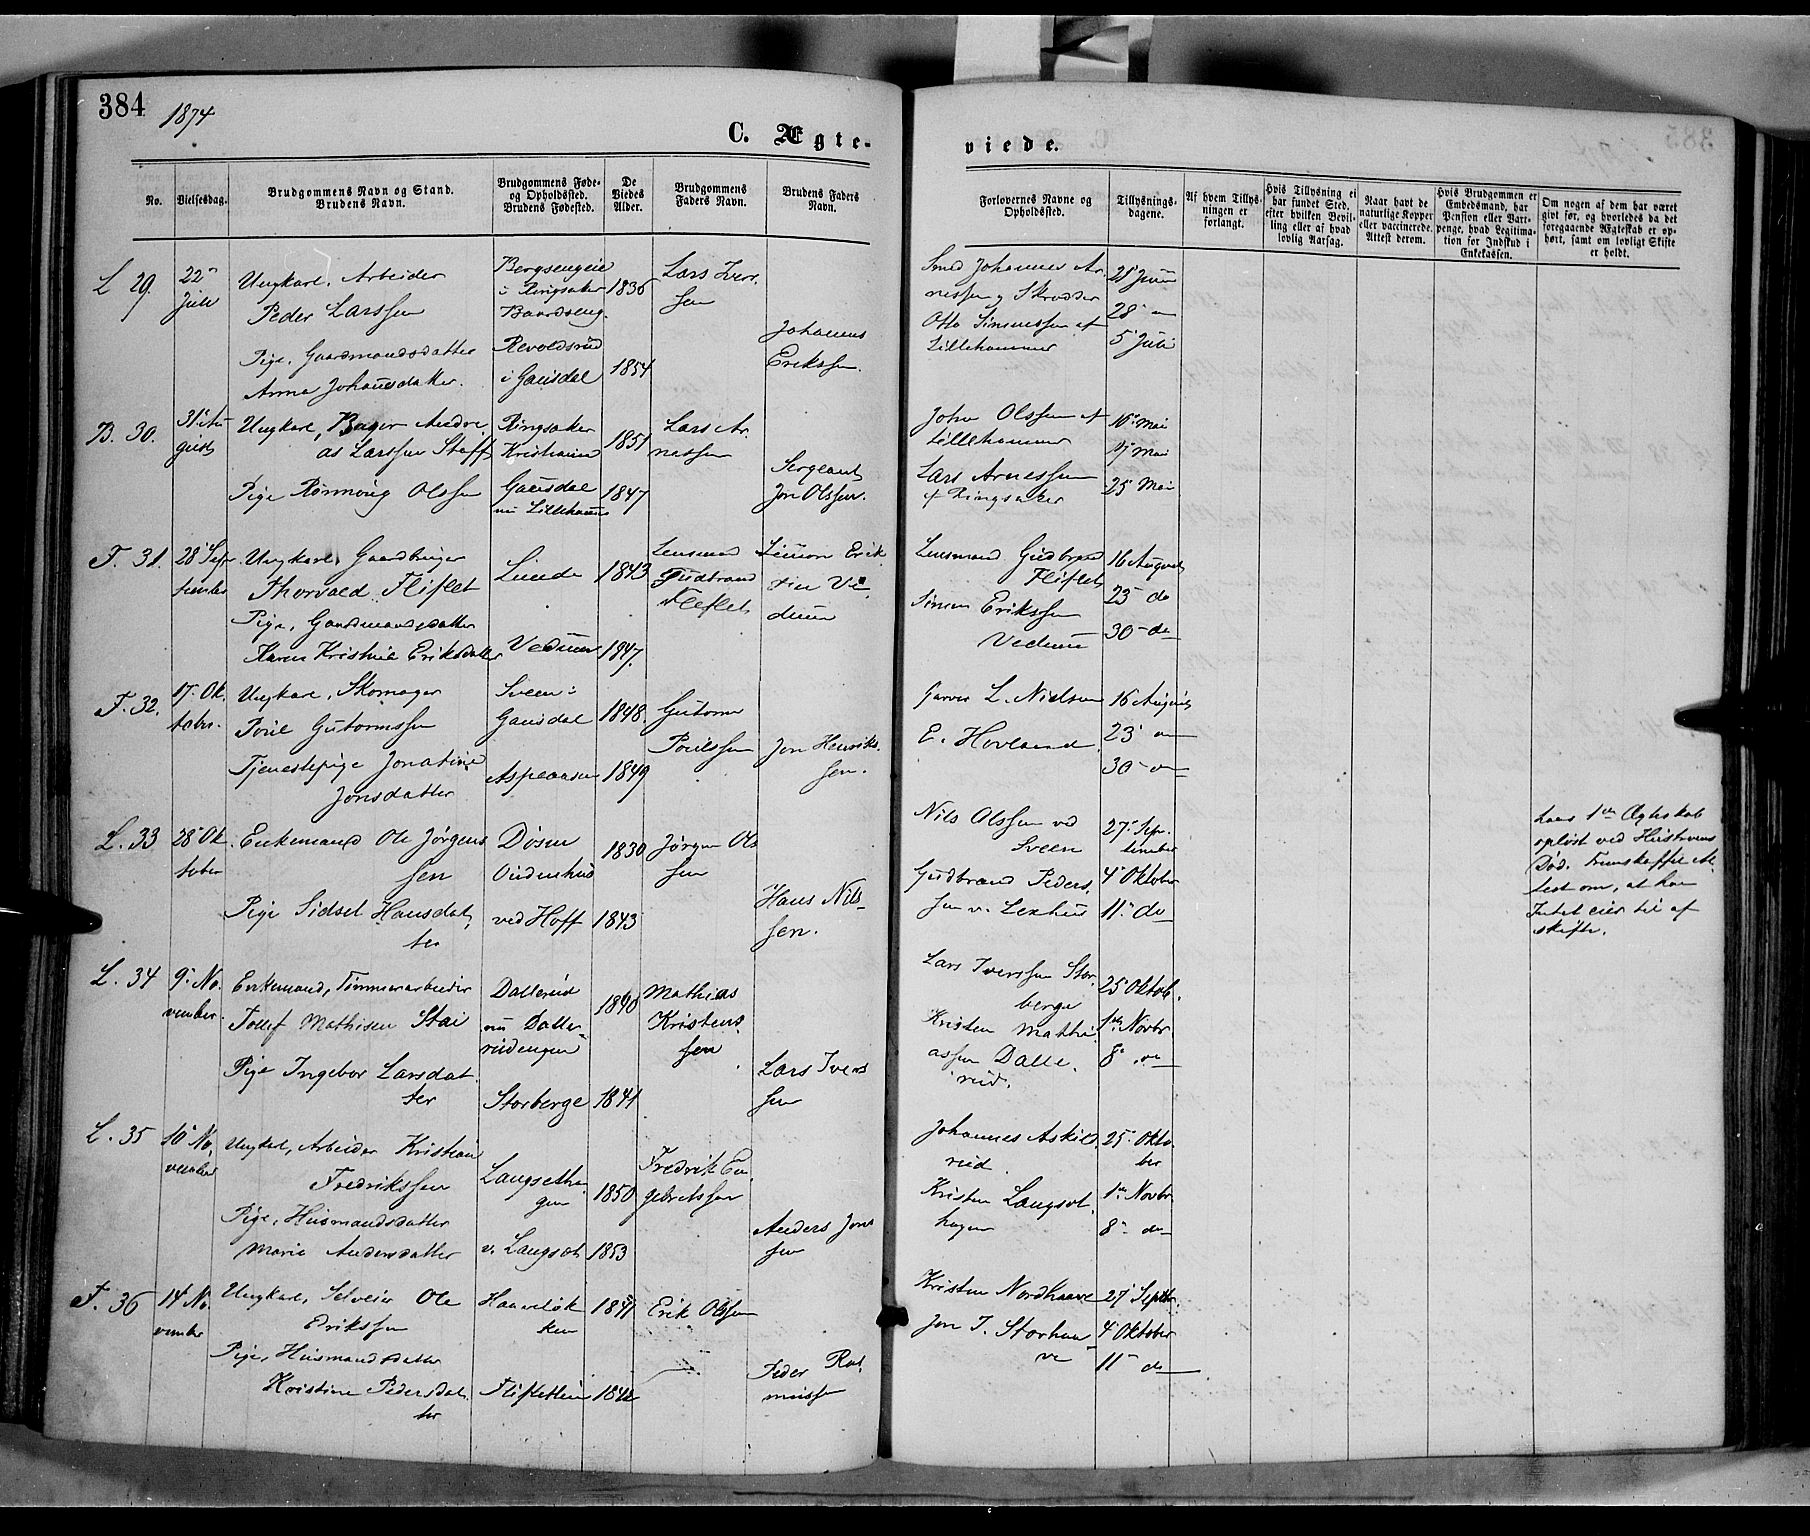 384
1874
C. Ægte-
viede.
No.
Vielsesdag.
Brudgommens Navn og Stand.
Brudens Navn.
Brudgommens Føde-
og Opholdssted.
Brudens Fødested.
De
Viedes
Alder.
Brudgommens
Faders Navn.
Brudens Faders
Navn.
Forlovernes Navne og
Opholdssted.
Tillysnings-
dagene.
Af hvem Tillys-
ningen er
forlangt.
Hvis Tillysning ei
har fundet Sted,
efter hvilken Bevil-
ling eller af hvad
lovlig Aarsag.
Naar havt de
naturlige Kopper
eller vaccinerede.
Attest derom.
Hvis Brudgommen er
Embedsmand, har
Pension eller Vart-
penge, hvad Legitima-
tion for Indskud i
Enkekassen.
Om nogen af dem har været
gift før, og hvorledes da det
foregaaende Ægteskab er op-
hørt, samt om lovligt Skifte
er holdt.
L 29.
22
Juli
Ungkarl, Arbeider
Peder Larssen
Pige, Gaardmandsdatter
Anna Johannesdatter.
Bergsengeie
i Ringsaker
Baardseng.
Revoldsrud
i Gausdal
1836
1854
Lars Iver
sen
Johannes
Erikssen.
Smed Johannes Ar
nessen, Skrædder
Otto Simenssen af
Lillehammer
21 Juni
28 "
5 Juli
B. 30.
31 Au
gust
Ungkarl, Bager Andre
as Larssen Staff
Pige Rønnoug Olssen
Ringsaker
Kristiania
Gausdal
nu Lillehammer
1851
1847
Lars Ar
nessen
Sergeant
Jon Olssen.
John Olssen af
Lillehammer
Lars Arnessen
af Ringsaker
10 Mai
17 Mai
25 Mai
F. 31.
28 Sep
tember
Ungkarl, Gaardbruger
Thorvald Fliflet
Pige, Gaardmandsdatter
Karen Kristine Eriksdatter
Linde
Vedum
1843
1847.
Lensmand
Gudbrand
Fliflet
Simon Erik
sen Ve
dum
Lensmand Gudbrand
Fliflet
Simen Erikssen
Vedum
16 August
23 do
30 do
F. 32.
17 Ok
tober.
Ungkarl, Skomager
Poul Gutormssen
Tjenestepige Jonatine
Jonsdatter
Sveen i
Gausdal
Aspeaasen
1848.
1849
Gutorm
Poulssen
Jon Henriks
sen.
Garver L. Nielsen
E. Hovland
16 August
23 "
30 "
L. 33
28 Ok
tober
Enkemand Ole Jørgens
sen
Pige Sidsel Hansdat,
ter
Døsen
Oudenhus
ved Hoff
1830
1843
Jørgen Ols
sen
Hans Nils
sen.
Nils Olssen ved
Sveen
Gudbrand Peders,
sen v. Lexhus
27 Sep.
tember
4 Oktober
11 do
Hans 1ste Ægteskab
opløst ved Hustruens
Død. Fremskaffet At
test om, at han
Intet eier til af
skifte.
L. 34
9 No
vember
Enkemand, Tømmerarbeider
Tollef Mathisen Stai
Pige Ingebor Larsdat
ter
Dallerud
nu Daller
rudengen
Storberge
1840
1841
Mathias
Kristens
sen
Lars Ivers
sen
Lars Iverssen Stor
berge
Kristen Mathi
assen Dalle
rud.
25 Oktob.
1ste Novbr
8 do
L. 35
10 No
vember
Ungkarl, Arbeider Kristian
Fredrikssen
Pige, Husmandsdatter
Marie Andersdatter
Langsetha
gen
v. Langset
1850
1853
Fredrik En
gebretssen
Anders Jons
sen
Johannes Askils
rud.
Kristen Langset
hagen
25 Okto
ber
1ste Novbr
8 do
F. 36
14 No
vember
Ungkarl, Selveier Ole
Erikssen
Pige, Husmandsdatter
Kristine Pedersdat
ter
Haaveløk
ken
Flifletteie
1841
1842
Erik Olssen
Peder Ras
mussen
Kristen Nordhaave
Jon J. Storhaa
ve
27 Septbr.
4 Oktober
11 do